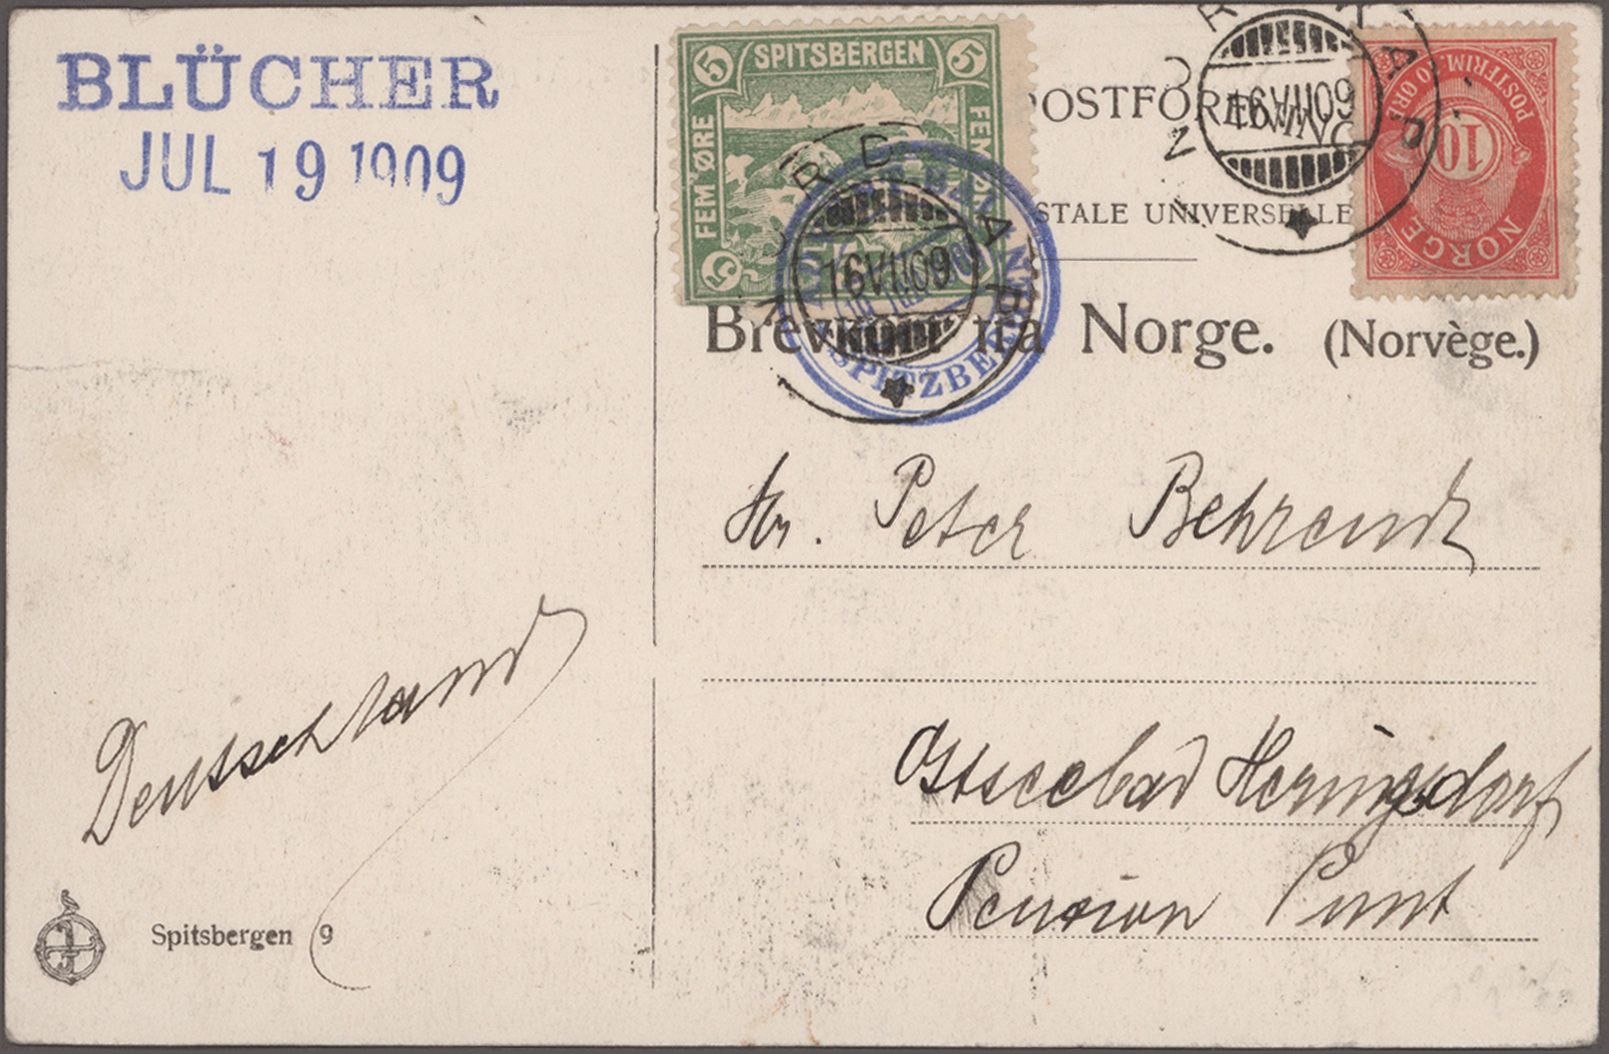 BLÜCHER
JUL 19 1909
5 SPITSBERGEN 5
FEM ØRE
5
16 VII 09
SPITZBERGEN
POSTFRIM. 10 ØRE
10
NORGE
16 VII 09
NORDKAP
STALE UNIVERSELLE
Brevkort fra Norge. (Norvège.)
Hr. Peter Behrendt
Ostseebad Heringsdorf
Pension Punt
Deutschland
Spitsbergen 9